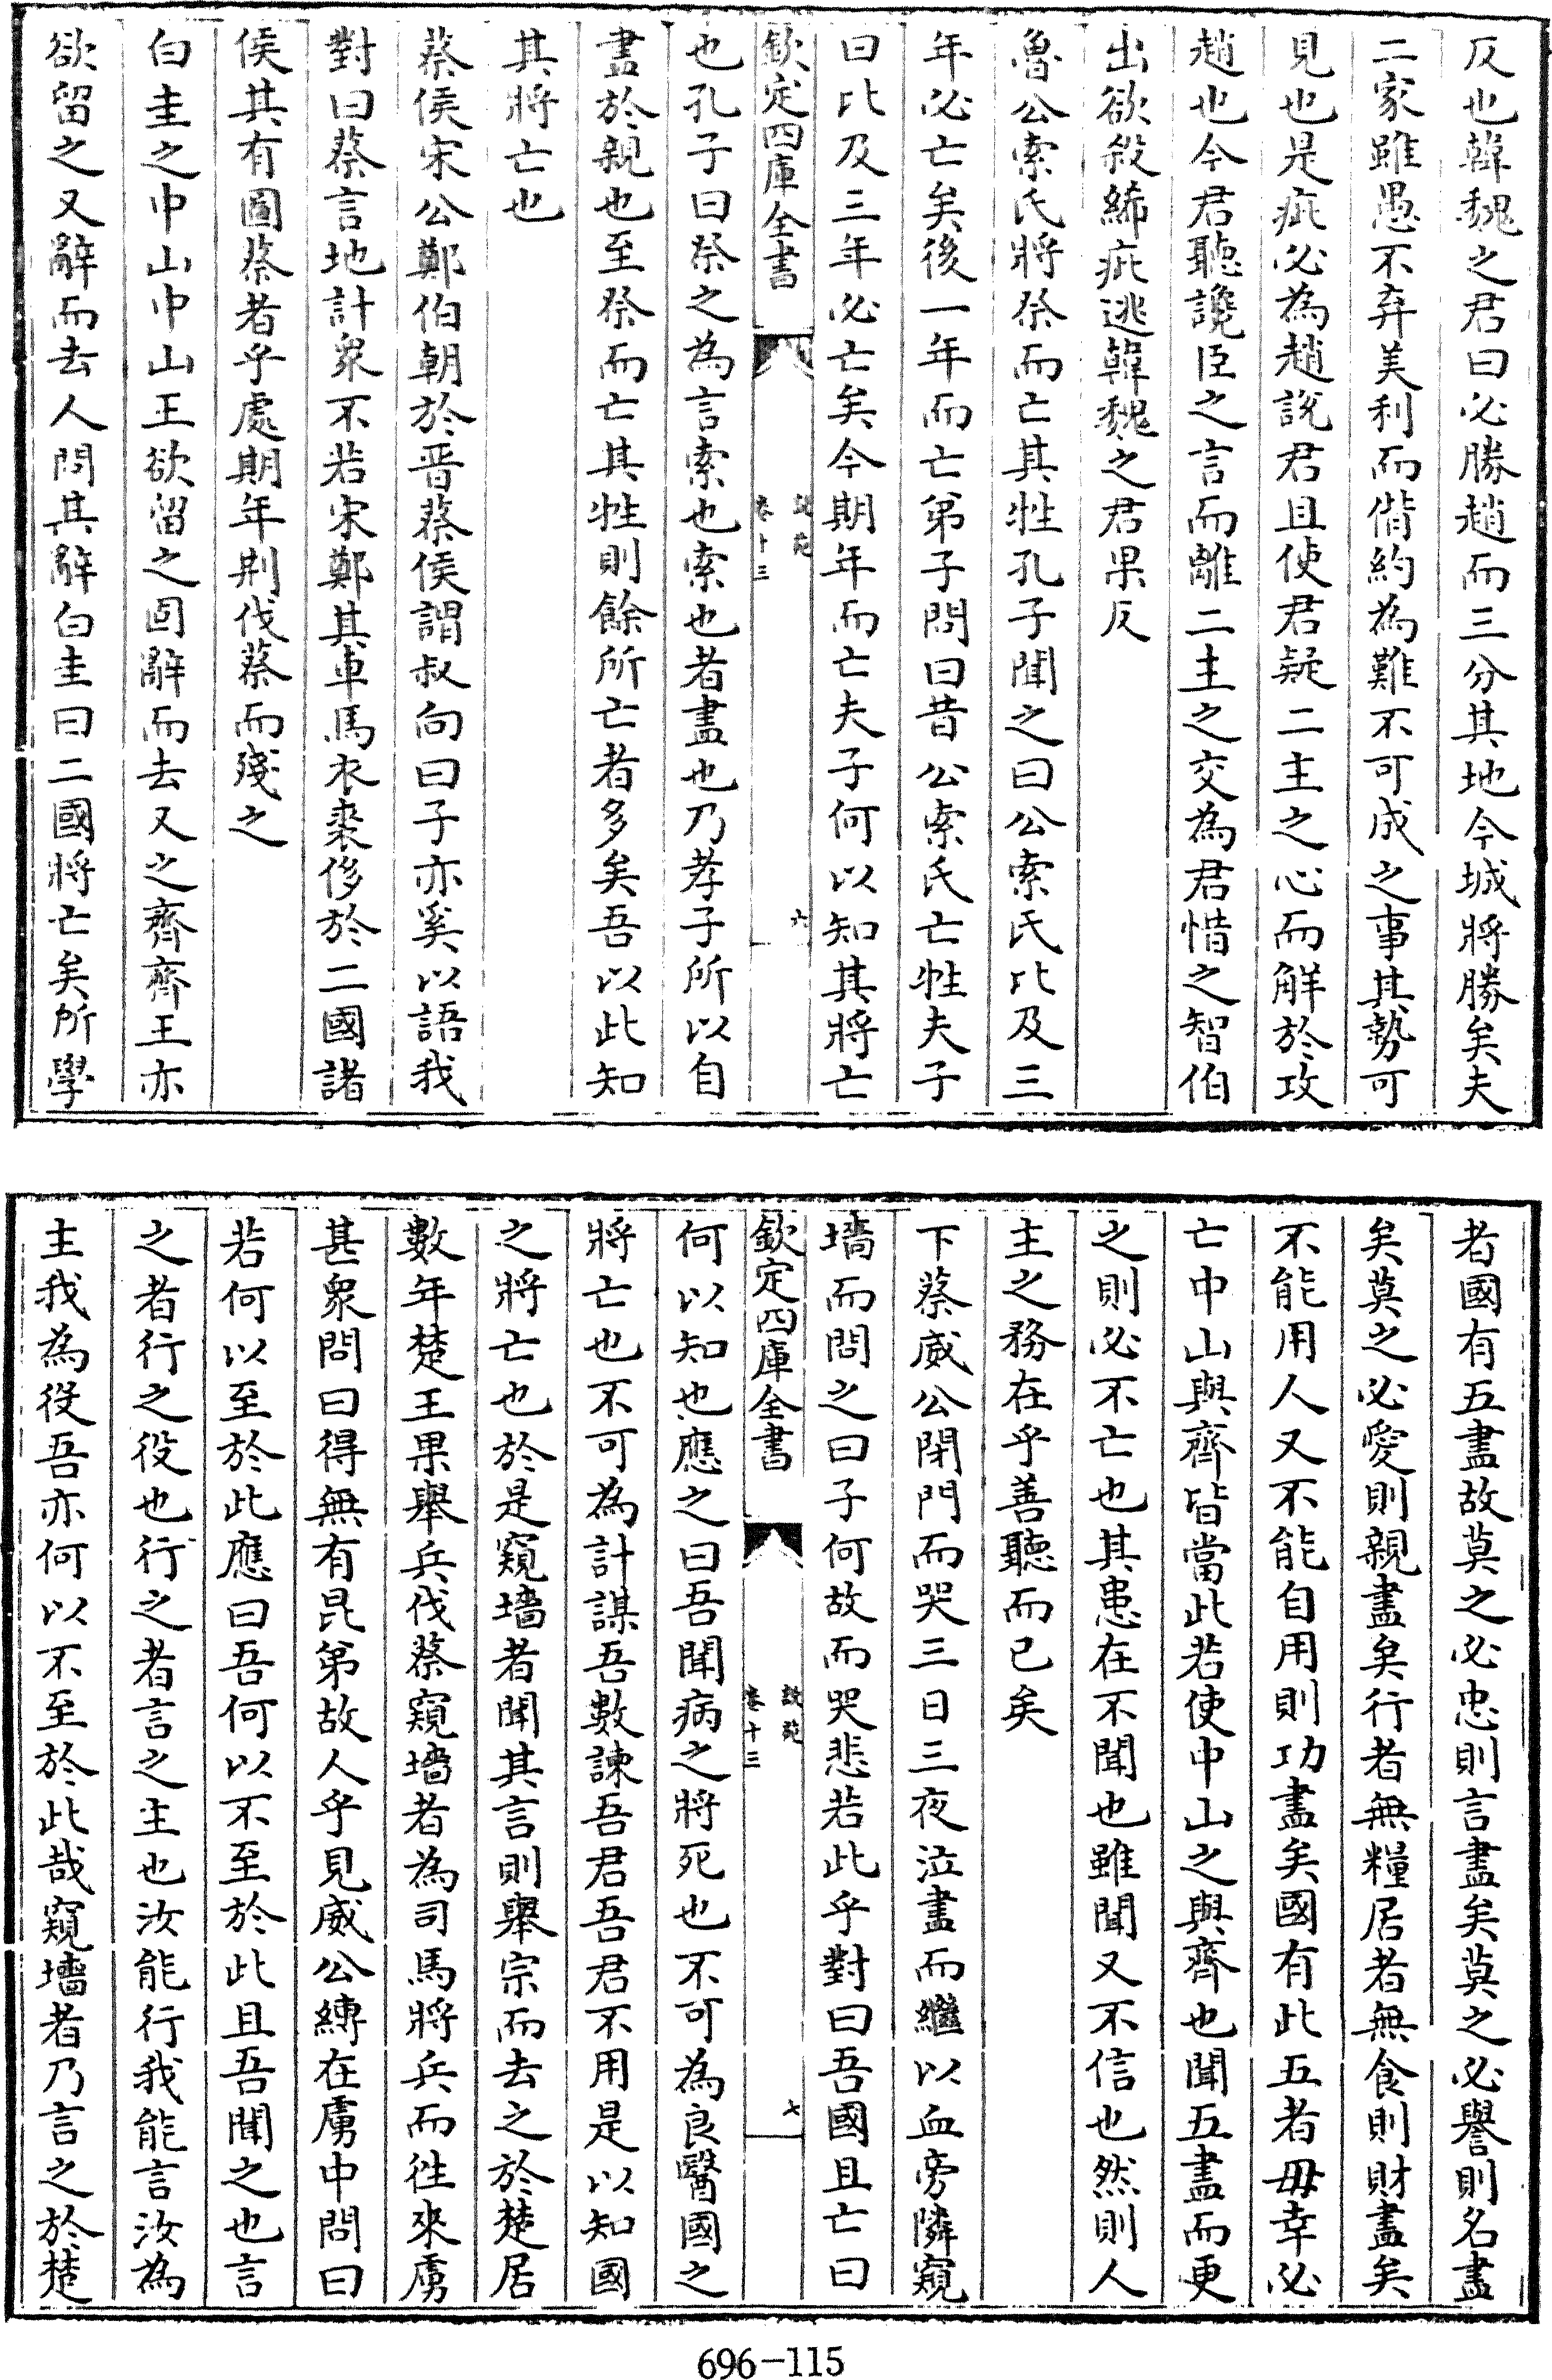 反也韓魏之君曰必勝趙而三分其地今城將勝矣夫
二家雖愚不弃美利而偝約為難不可成之事其勢可
見也是疵必為趙說君且使君疑二主之心而解於攻
趙也今君聽讒臣之言而離二主之交為君惜之智伯
出欲殺絺疵逃韓魏之君果反
魯公索氏將祭而亡其牲孔子聞之曰公索氏比及三
年必亡矣後一年而亡弟子問曰昔公索氏亡牲夫子
曰比及三年必亡矣今期年而亡夫子何以知其將亡
欽定四庫全書
說苑
卷十三
六
也孔子曰祭之為言索也索也者盡也乃孝子所以自
盡於親也至祭而亡其牲則餘所亡者多矣吾以此知
其將亡也
蔡侯宋公鄭伯朝於晋蔡侯謂叔向曰子亦奚以語我
對曰蔡言地計衆不若宋鄭其車馬衣裘侈於二國諸
侯其有圖蔡者乎處期年荆伐蔡而殘之
白圭之中山中山王欲留之固辭而去又之齊齊王亦
欲留之又辭而去人問其辭白圭曰二國將亡矣所學
者國有五盡故莫之必忠則言盡矣莫之必譽則名盡
矣莫之必愛則親盡矣行者無糧居者無食則財盡矣
不能用人又不能自用則功盡矣國有此五者毋幸必
亡中山與齊皆當此若使中山之與齊也聞五盡而更
之則必不亡也其患在不聞也雖聞又不信也然則人
主之務在乎善聽而已矣
下蔡威公閉門而哭三日三夜泣盡而繼以血旁隣窺
墻而問之曰子何故而哭悲若此乎對曰吾國且亡曰
欽定四庫全書
說苑
卷十三
七
何以知也應之曰吾聞病之將死也不可為良醫國之
將亡也不可為計謀吾數諫吾君吾君不用是以知國
之將亡也於是窺墻者聞其言則舉宗而去之於楚居
數年楚王果舉兵伐蔡窺墻者為司馬將兵而徃來虜
甚衆問曰得無有昆弟故人乎見威公縛在虜中問曰
若何以至於此應曰吾何以不至於此且吾聞之也言
之者行之役也行之者言之主也汝能行我能言汝為
主我為役吾亦何以不至於此哉窺墻者乃言之於楚
696-115